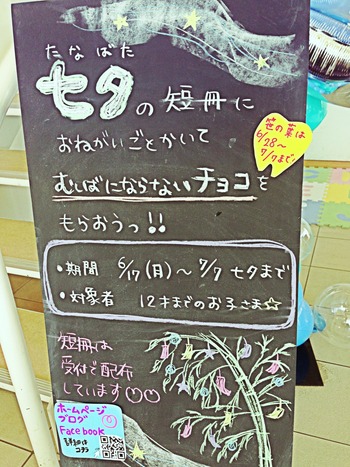 たなばた
七夕の短冊に
おねがいごとかいて
むしばにならないチョコを
もらおうっ!!
笹の葉は
6/28〜
7/7まで
・期間 6/17(月)〜7/7 七夕まで
・対象者 12才までのお子さま☆
短冊は
受付で配布
しています♡♡
ホームページ
ブログ
Facebook